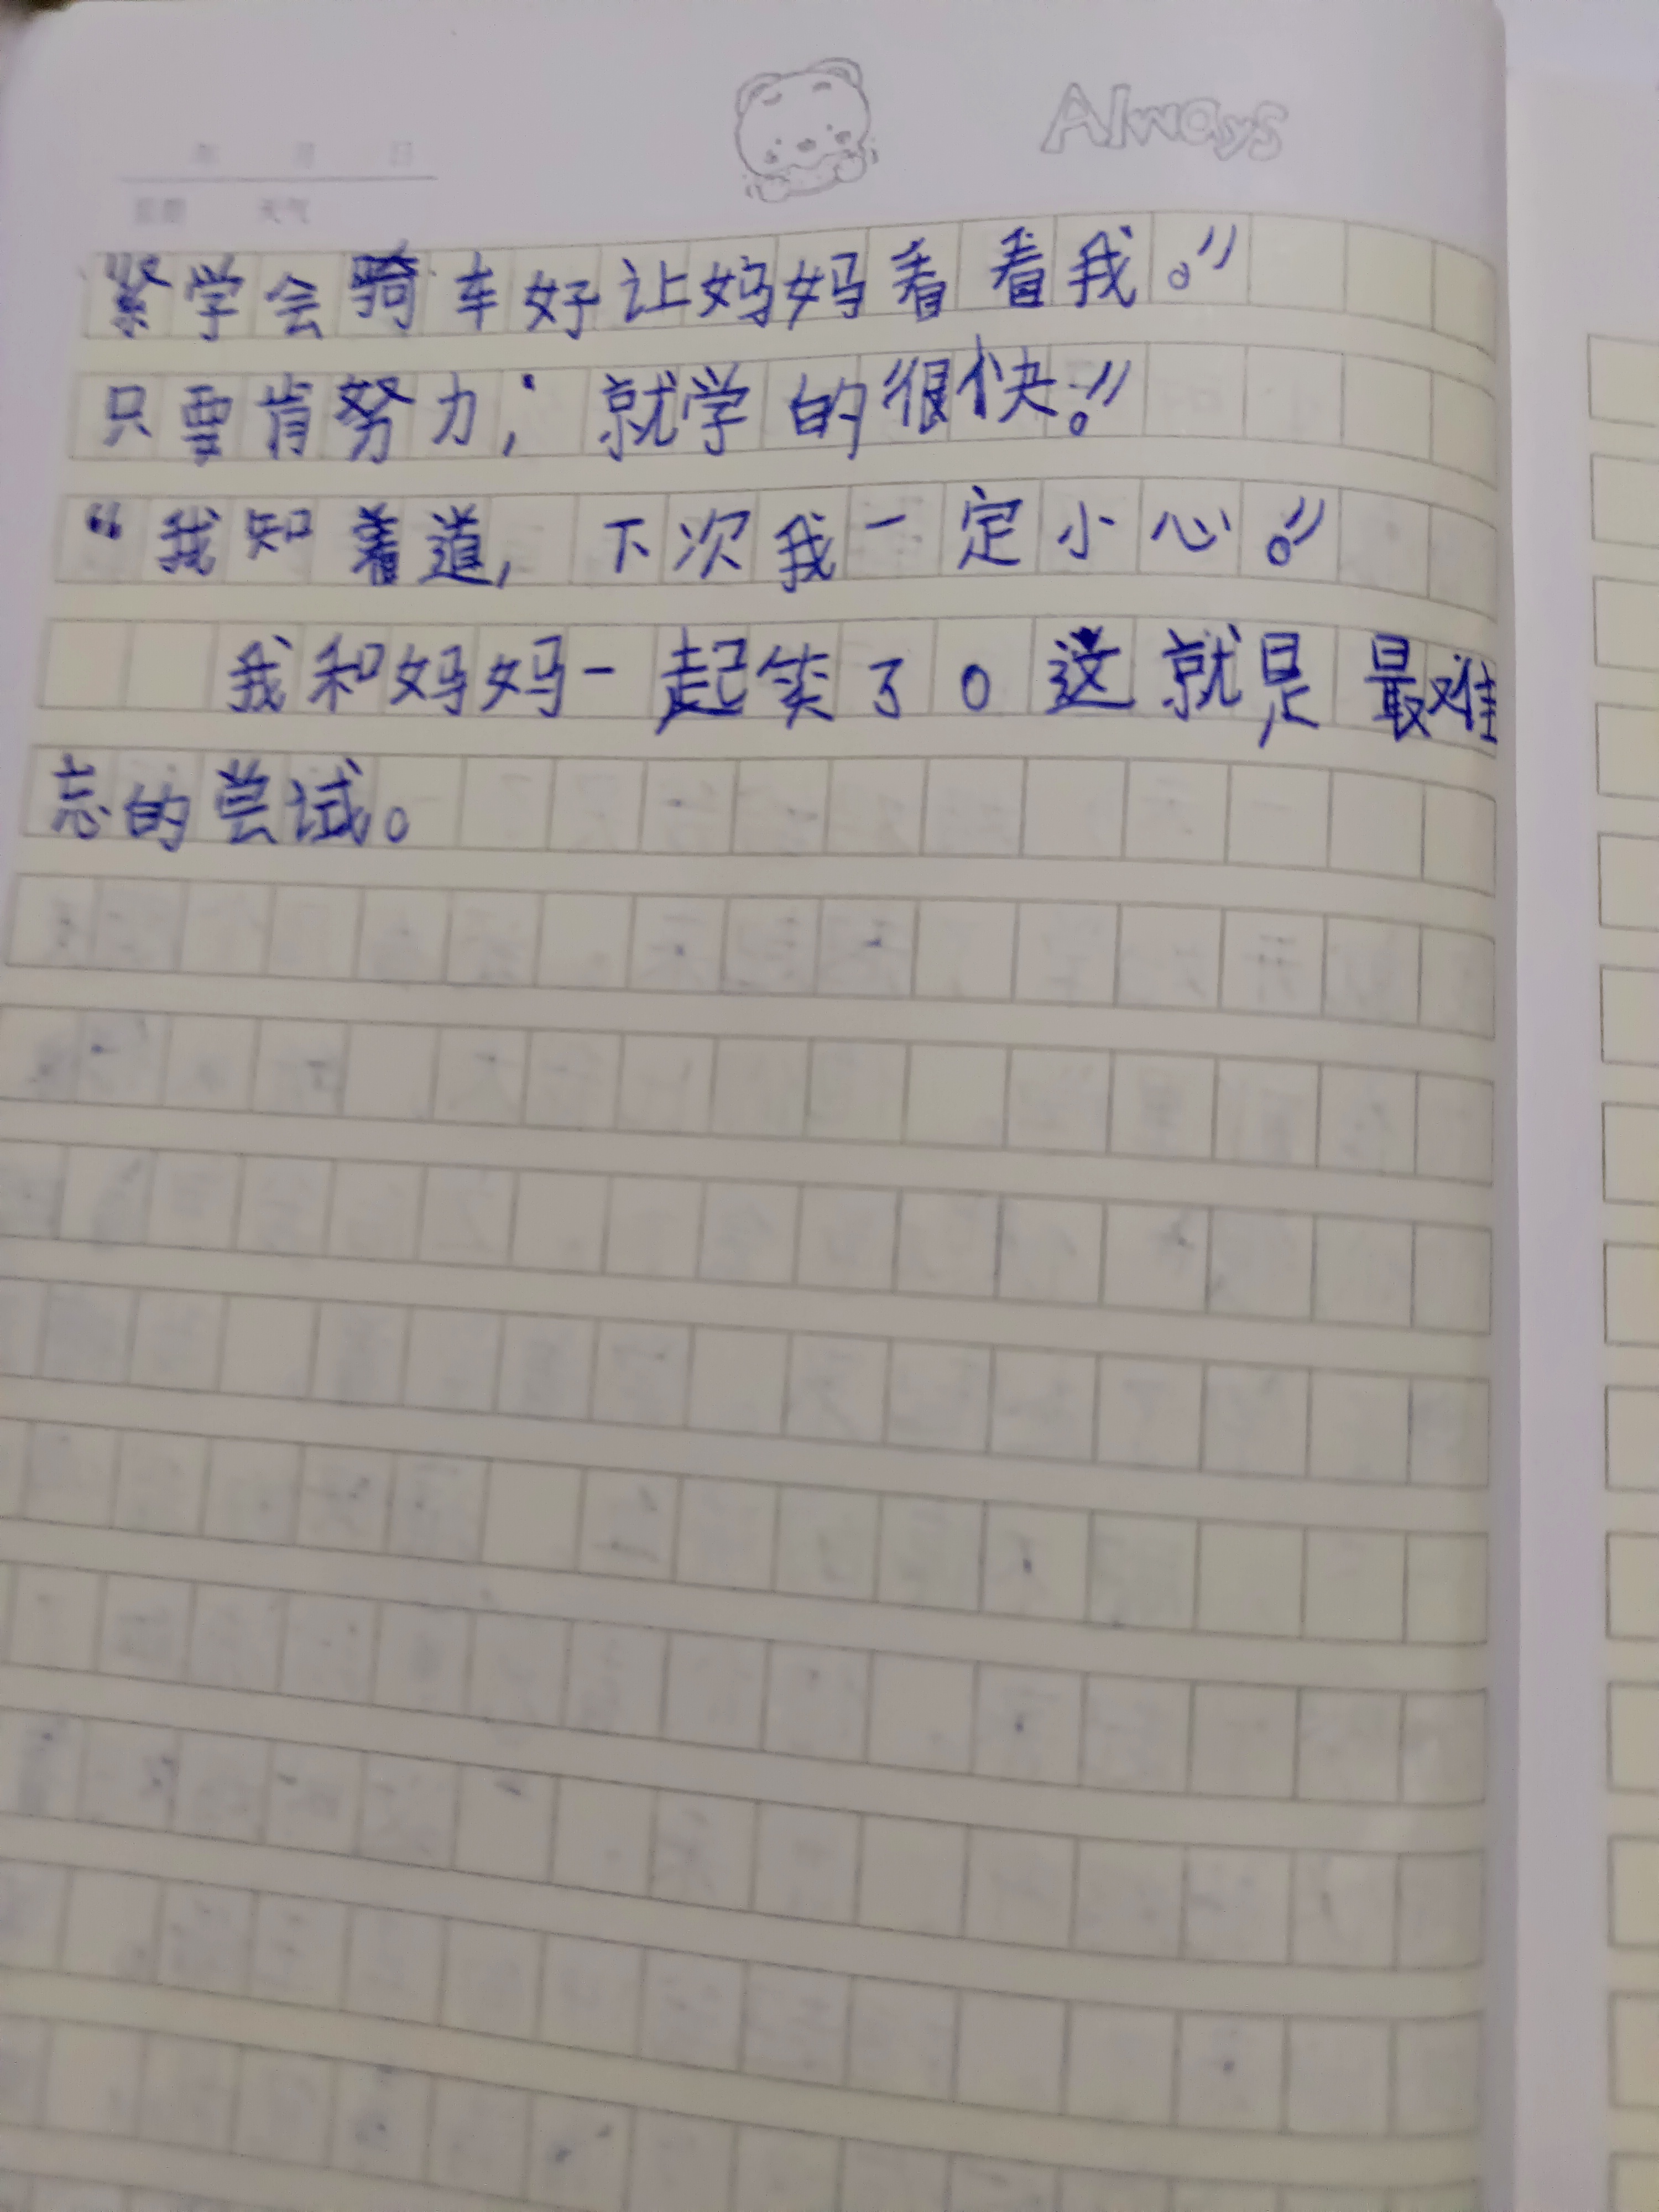 年 月 日
星期 天气
Always
紧学会骑车好让妈妈看看我。”
只要肯努力，就学的很快。”
“我知着道，下次我一定小心。”
我和妈妈一起笑了。这就是最难
忘的尝试。